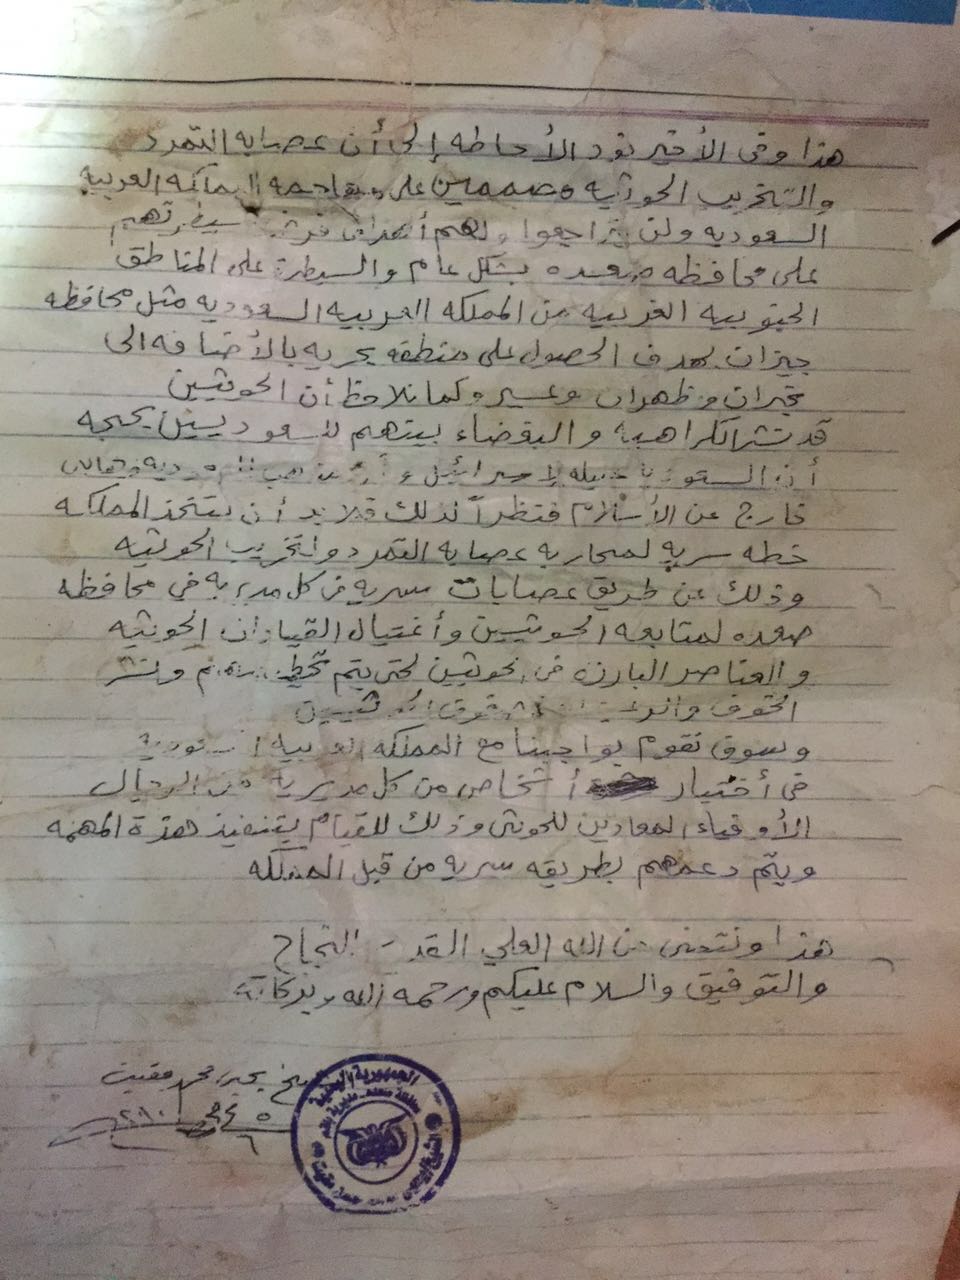 هذا وفي الأخير نود الأحاطه إلى أن عصابه التمرد
والتخريب الحوثيه مصممين على مهاجمه المملكه العربيه
السعوديه ولن يتراجعوا ولهم أهداف سيطرتهم
على محافظه صعده بشكل عام والسيطره على المناطق
الجنوبيه الغربيه من المملكه العربيه السعوديه مثل محافظه
جيزان بهدف الحصول على منطقه بحريه بالأضافه الى
نجران وظهران وعسير وكما نلاحظ أن الحوثيين
قد نشر الكراهيه والبغضاء بينهم للسعوديين بحجه
أن عميله لإسرائيل
خارج عن الأسلام فنظراً لذلك فلابد أن يتخذ المملكه
خطه سريه لمحاربه عصابه التمرد والتخريب الحوثيه
وذلك عن طريق عصابات سريه في كل مديريه في محافظه
صعده لمتابعه الحوثيين وأغتيال القيادات الحوثيه
والعناصر البارزه حتى يتم ونشر
الخوف
وسوف نقوم بواجبنا مع المملكه العربيه السعوديه
في أختيار أشخاص من كل مديريه من الرجال
الأوفياء المعادين للحوثي وذلك للقيام بتنفيذ هذة المهمه
ويتم دعمهم بطريقه سريه من قبل المملكه
هذا ونتمنى من الله العلي القدير النجاح
والتوفيق والسلام عليكم ورحمه الله وبركاته
محمد مقيت
الجمهورية اليمنية